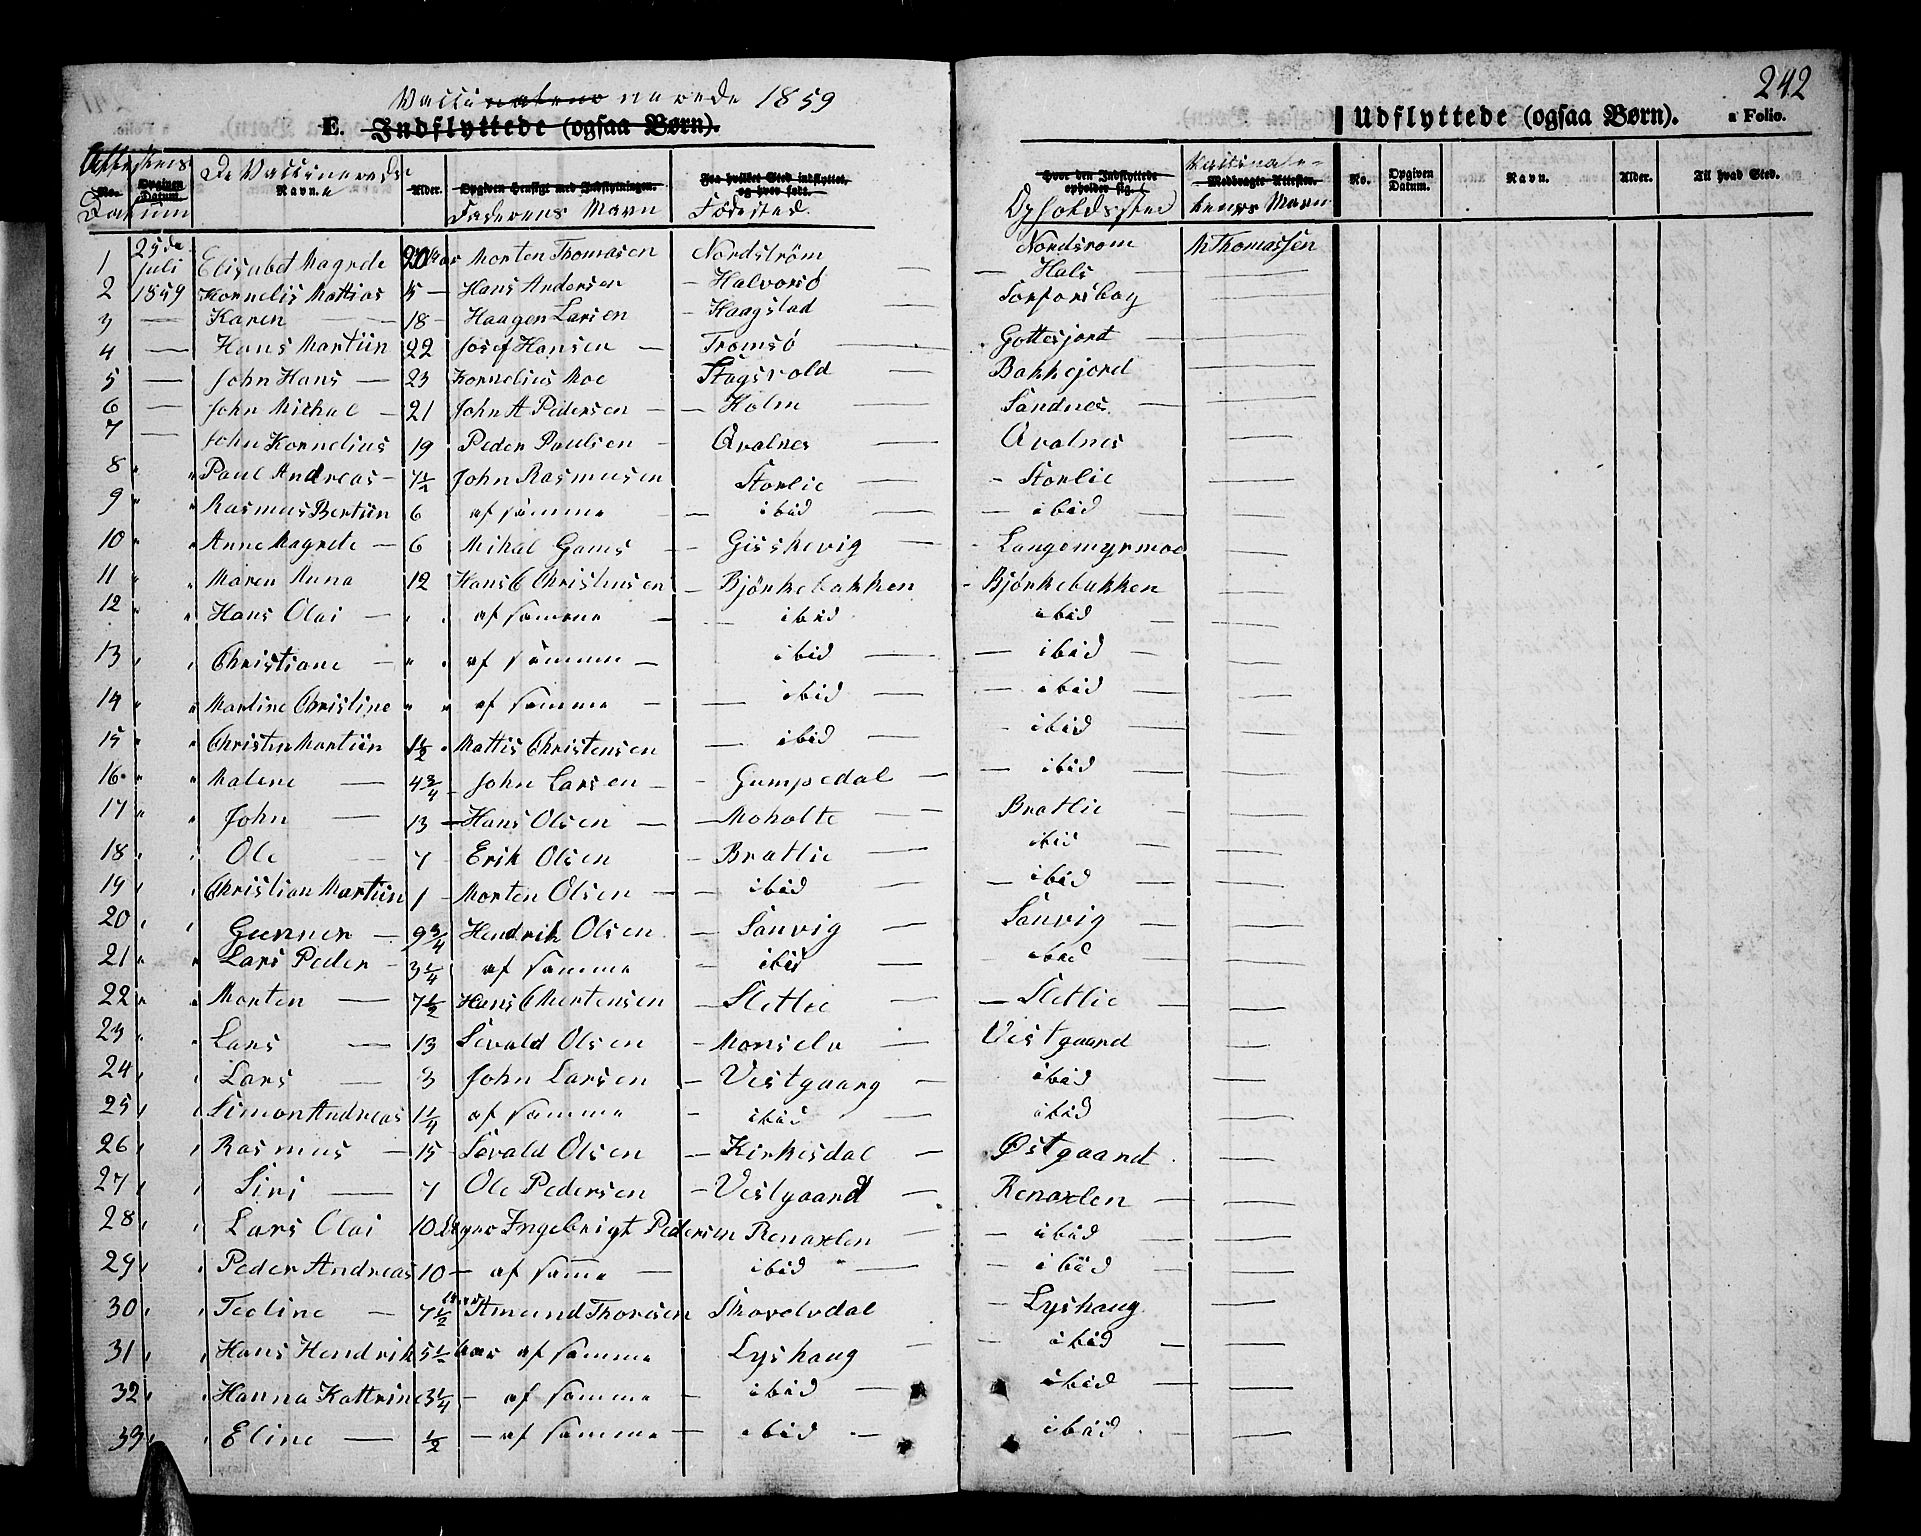 242
Vaccinerede 1859
E. Indflyttede (ogsaa Børn).
Udflyttede (ogsaa Børn).
a Folio.
Attestens Datum
No.
Opgiven Datum.
De Vaccineredes Navne
Alder.
Opgiven Hensigt med Indflytningen.
Faderens Navn
Fra hvilket Sted indflyttet, og hvor født.
Fødested.
Hvor den Indflyttede opholder sig.
Opholdssted
Medbragte Attester.
No.
Opgiven Datum.
Navn.
Alder.
Til hvad Sted.
1 25de Juli Elisabet Magrete 20 Aar Morten Thomasen Nordstrøm Nordsrom M Thomassen
2 1859 Kornelis Mattias 15 — Hans Andersen — Halvorsö — Hals —
3 — Karen — 18 — Haagen Larsen — Haagstad — Torforsbag —
4 — Hans Martiin 22 Josef Hansen — Tromsö — Gottesjord —
5 — John Hans — 23 Kornelius Moe Stagsvold — Bakkejord —
6 — John Michal — 21 John A Pedersen — Holm — Sandnes —
7 — John Kornelius 19 Peder Paulsen — Qvalnes — Qvalnes —
8 " " Paul Andreas — 7½ John Rasmusen Storlie — Storlie —
9 " " Rasmus Bertiin 6 af samme — ibid — ibid —
10 " " Anne Magrete — 6 Mihal Gams — Gisskevig — Langemyrmoe —
11 " " Maren Anna 12 Hans C Christensen — Bjørkebakken — Bjørkebakken —
12 " " Hans Olai — " " af samme — ibid ibid —
13 " " Christiane — " " af samme — ibid — ibid —
14 " " Martine Christine " " af samme — ibid — ibid —
15 " " Christen Martiin 1½ " Mattis Christensen — ibid — ibid —
16 " " Malene — 4¾ — John Larsen — Gumpedal — ibid —
17 " " John — 13 — Hans Olsen — Moholte — Bratlie —
18 " " Ole — 7 — Erik Olsen — Bratlie — ibid —
19 " " Christian Martiin 1 — Morten Olsen — ibid — ibid —
20 " " Gunner — 9¾ Hendrik Olsen — Sanvig — Sanvig —
21 " " Lars Peder — 3¼ af samme — ibid — ibid —
22 " " Morten — 7½ Hans C Mortensen — Sletlie — Sletlie —
23 " " Lars — 13 Sivald Olsen — Monselv — Vestgaard —
24 " " Lars — 3 John Larsen — Vestgaarg — ibid —
25 " " Simon Andreas 1¼ af samme — ibid — ibid —
26 " " Rasmus — 15 Sevald Olsen — Kirkesdal — Østgaard —
27 " " Siri — 7 Ole Pedersen — Vestgaard — Renaxlen —
28 " " Lars Olai 10 Ingebrigt Pedersen Renaxlen — ibid —
29 " " Peder Andreas 10 — af samme — ibid — ibid —
30 " " Teoline — 7½ Amund Thorsen — Lyshaug —
31 " " Hans Hendrik 5½ Aar af samme Lyshaug — ibid —
32 " " Hanna Kattrine 3¼ — af samme — ibid — ibid —
33 " " Eline — ½ — af samme — ibid — ibid —